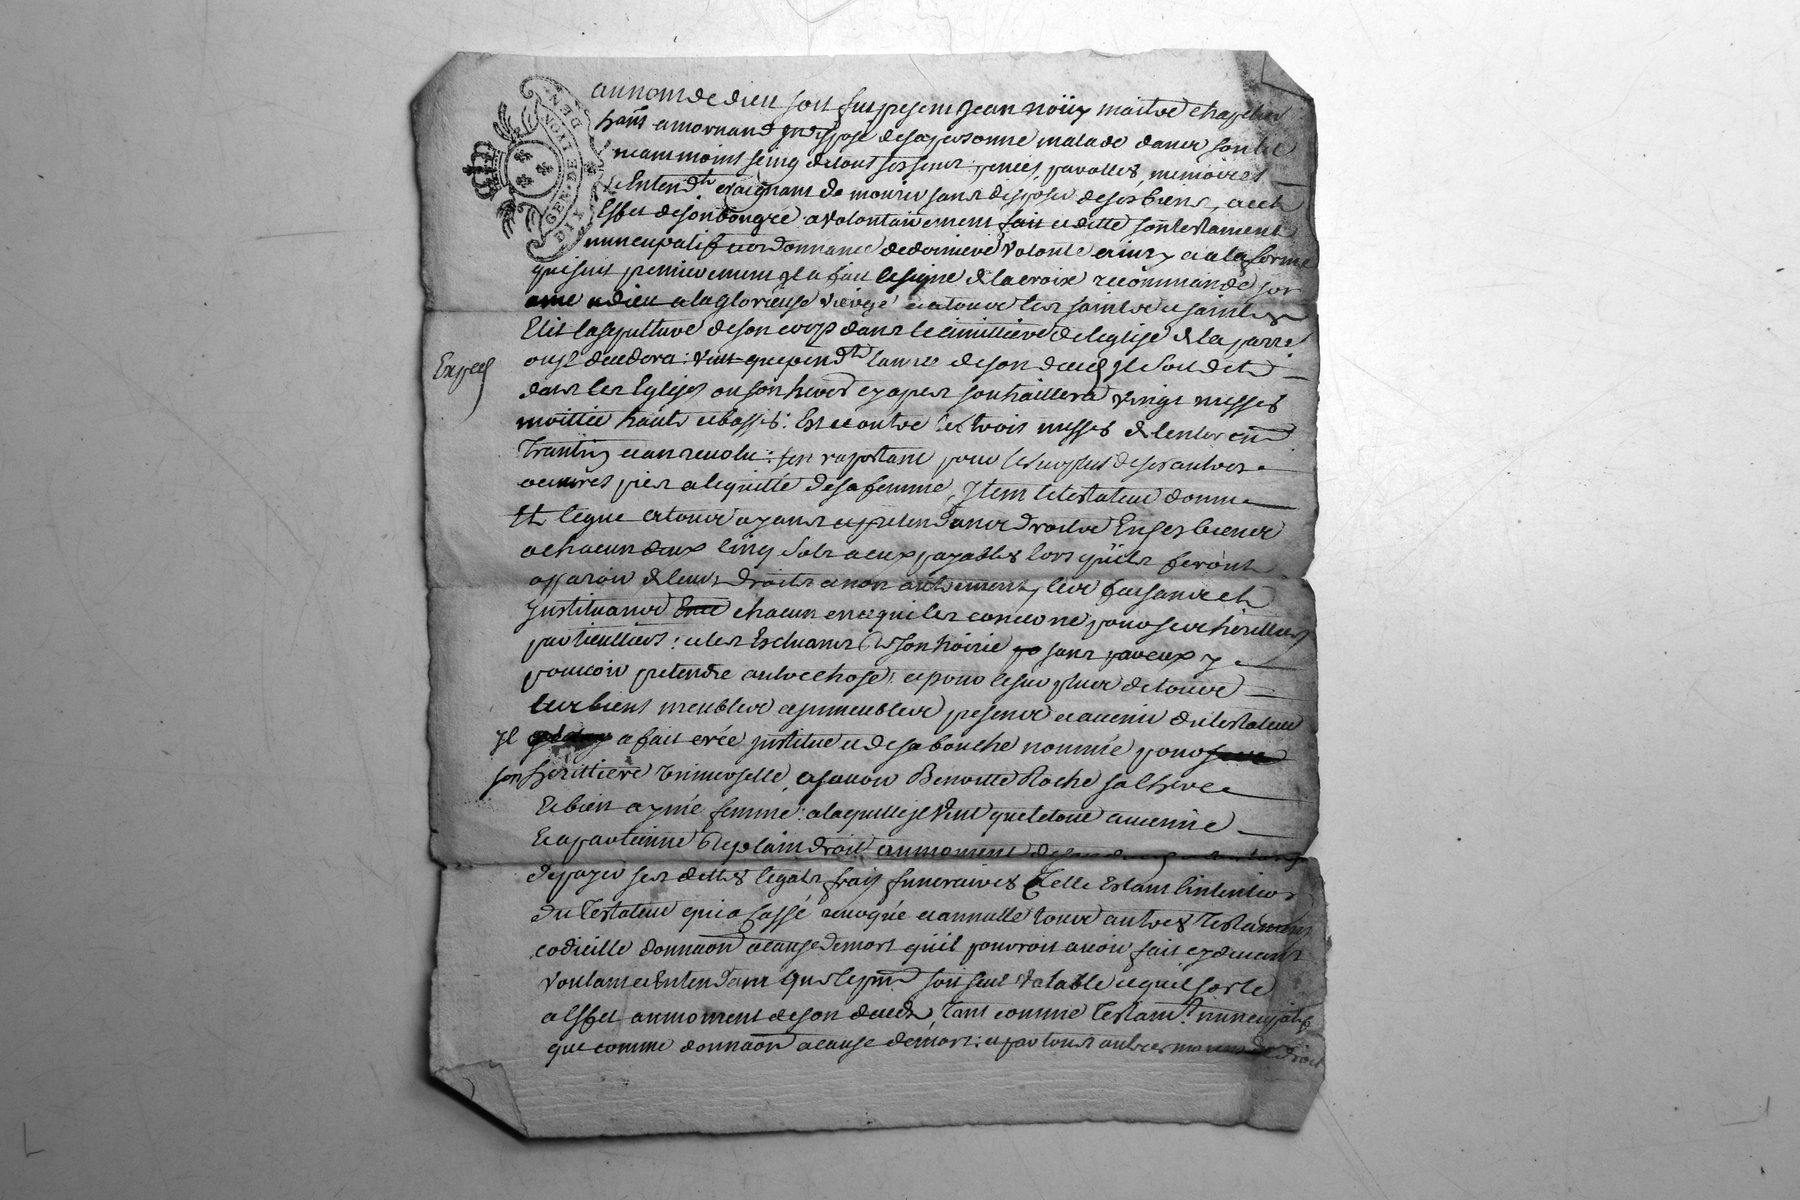 GEN. DE LION
DIX DEN.
au nom de dieu soit fut present Jean noüy maitre chapelier
hant a mornand indispose de sa personne malade dans son lit
neammoins sein de tout ses sens pensées, parolles, memoires
& Entendt craignant de mourir sans disposer de ses biens, a cet
Effet de son bon gré a volontairement fait et ditte son testament
nuncupatif et ordonnance de derniere volonté ainsy et a la forme
que suit premierement il a fait le signe de la croix recommande son
ame a dieu a la glorieuse vierge et a tous les saints et saintes
Elit la sepulture de son corps dans le cimittiere de l'eglise de la parre
ou il decedera : veut que pendt lannée de son deces il soit dit
Exped
dans les Eglises ou son hered cy apres souhaittera vingt messes
moittié hautes et basses : Et ce outre les trois messes de lenterremt
trantin et an revolu : sen raportant pour le surplus de ses autres
oeuvres pies a lequitté de sa femme, Item le testateur donne
et legue a tous ayans et pretendans droits En ses biens
a chacun deux cinq sols a eux payables lors quils feront
aparoir de leurs droits et non autrement, leur faisant et
instituant chacun en ce qui les concerne pour ses heritiers
particulliers : et les Excluant de son hoirie sans par eux y
pouvoir pretendre autre chose : et pour le surplus de tous
les biens meubles et immeubles presens et avenir du testateur
il a fait crée institue et de sa bouche nommée pour
son herittiere universelle, a savoir Benoitte Roche sa chere
et bien aymée femme : a laquelle il veut que le tout avienne
et apartienne de plain droit au moment
de payer ses dettes legats frais funeraires telle Estant lintention
du Testateur qui a cassé revoqué et annullé tous autres Testamens
codicille donnaon a cause de mort quil pourroit avoir fait cy devant
voulant et Entendant que le pnt soit seul valable et quil sorte
a Effet au moment de son deces, tant comme Testamt nuncupatif
que comme donnaon a cause de mort : et par tous autres moyens de droit